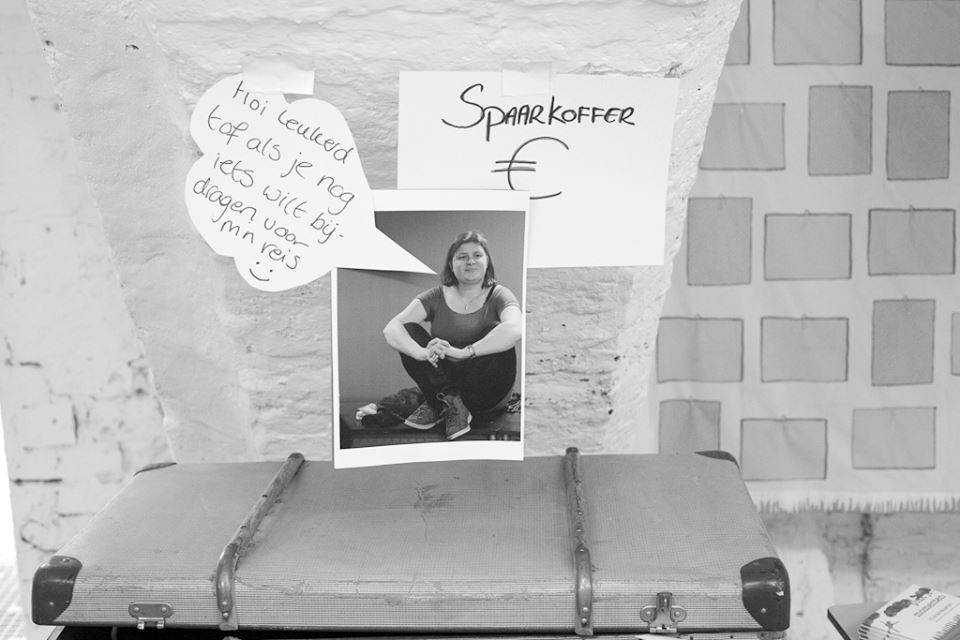 Hoi leukerd
tof als je nog
iets wilt bij-
dragen voor
m'n reis
:)
SPAARKOFFER
€